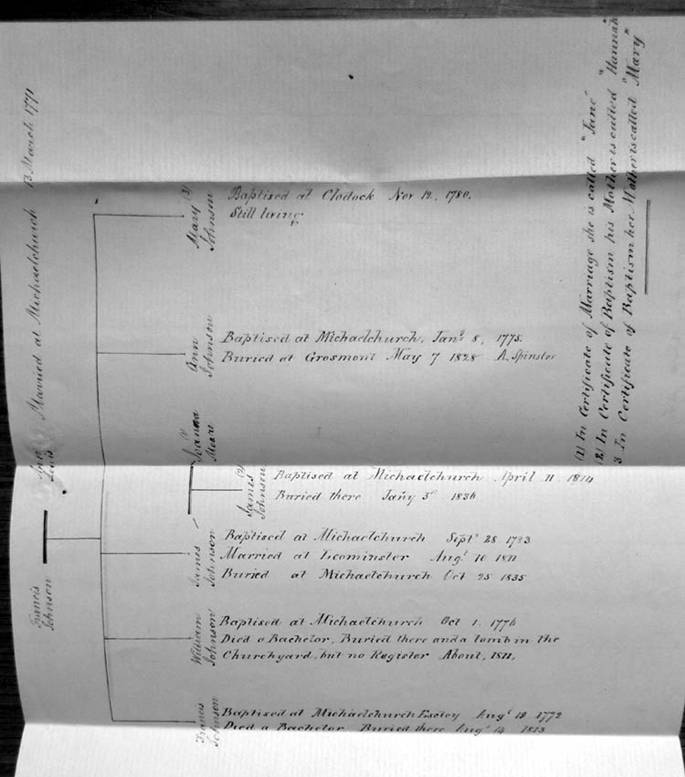 Married at Michaelchurch 13 March 1771
Francis
Johnson
Mary (3)
Johnson
Baptised at Clodock Nov 12, 1780.
Still living
Ann
Johnson
Baptised at Michaelchurch, Janʸ 8, 1775.
Buried at Grosmont May 7 1828 A Spinster
(1)
James (2)
Johnson
Baptised at Michaelchurch April 11 1814
Buried there Janʸ 3ᵈ 1836
James
Johnson
Baptised at Michaelchurch Septʳ 28 1783
Married at Leominster Augᵗ 10 1811
Buried at Michaelchurch Oct 25 1835
William
Johnson
Baptised at Michaelchurch Oct 1. 1776
Died a Bachelor, Buried there and a tomb in the
Churchyard, but no Register About, 1811,
Francis
Johnson
Baptised at Michaelchurch Escley Augᵗ 18 1772
Died a Bachelor Buried there Augᵗ 14 1813
(1) In Certificate of Marriage she is called "Jane"
(2) In Certificate of Baptism his Mother is called "Hannah
3 In Certificate of Baptism her Mother is called "Mary"